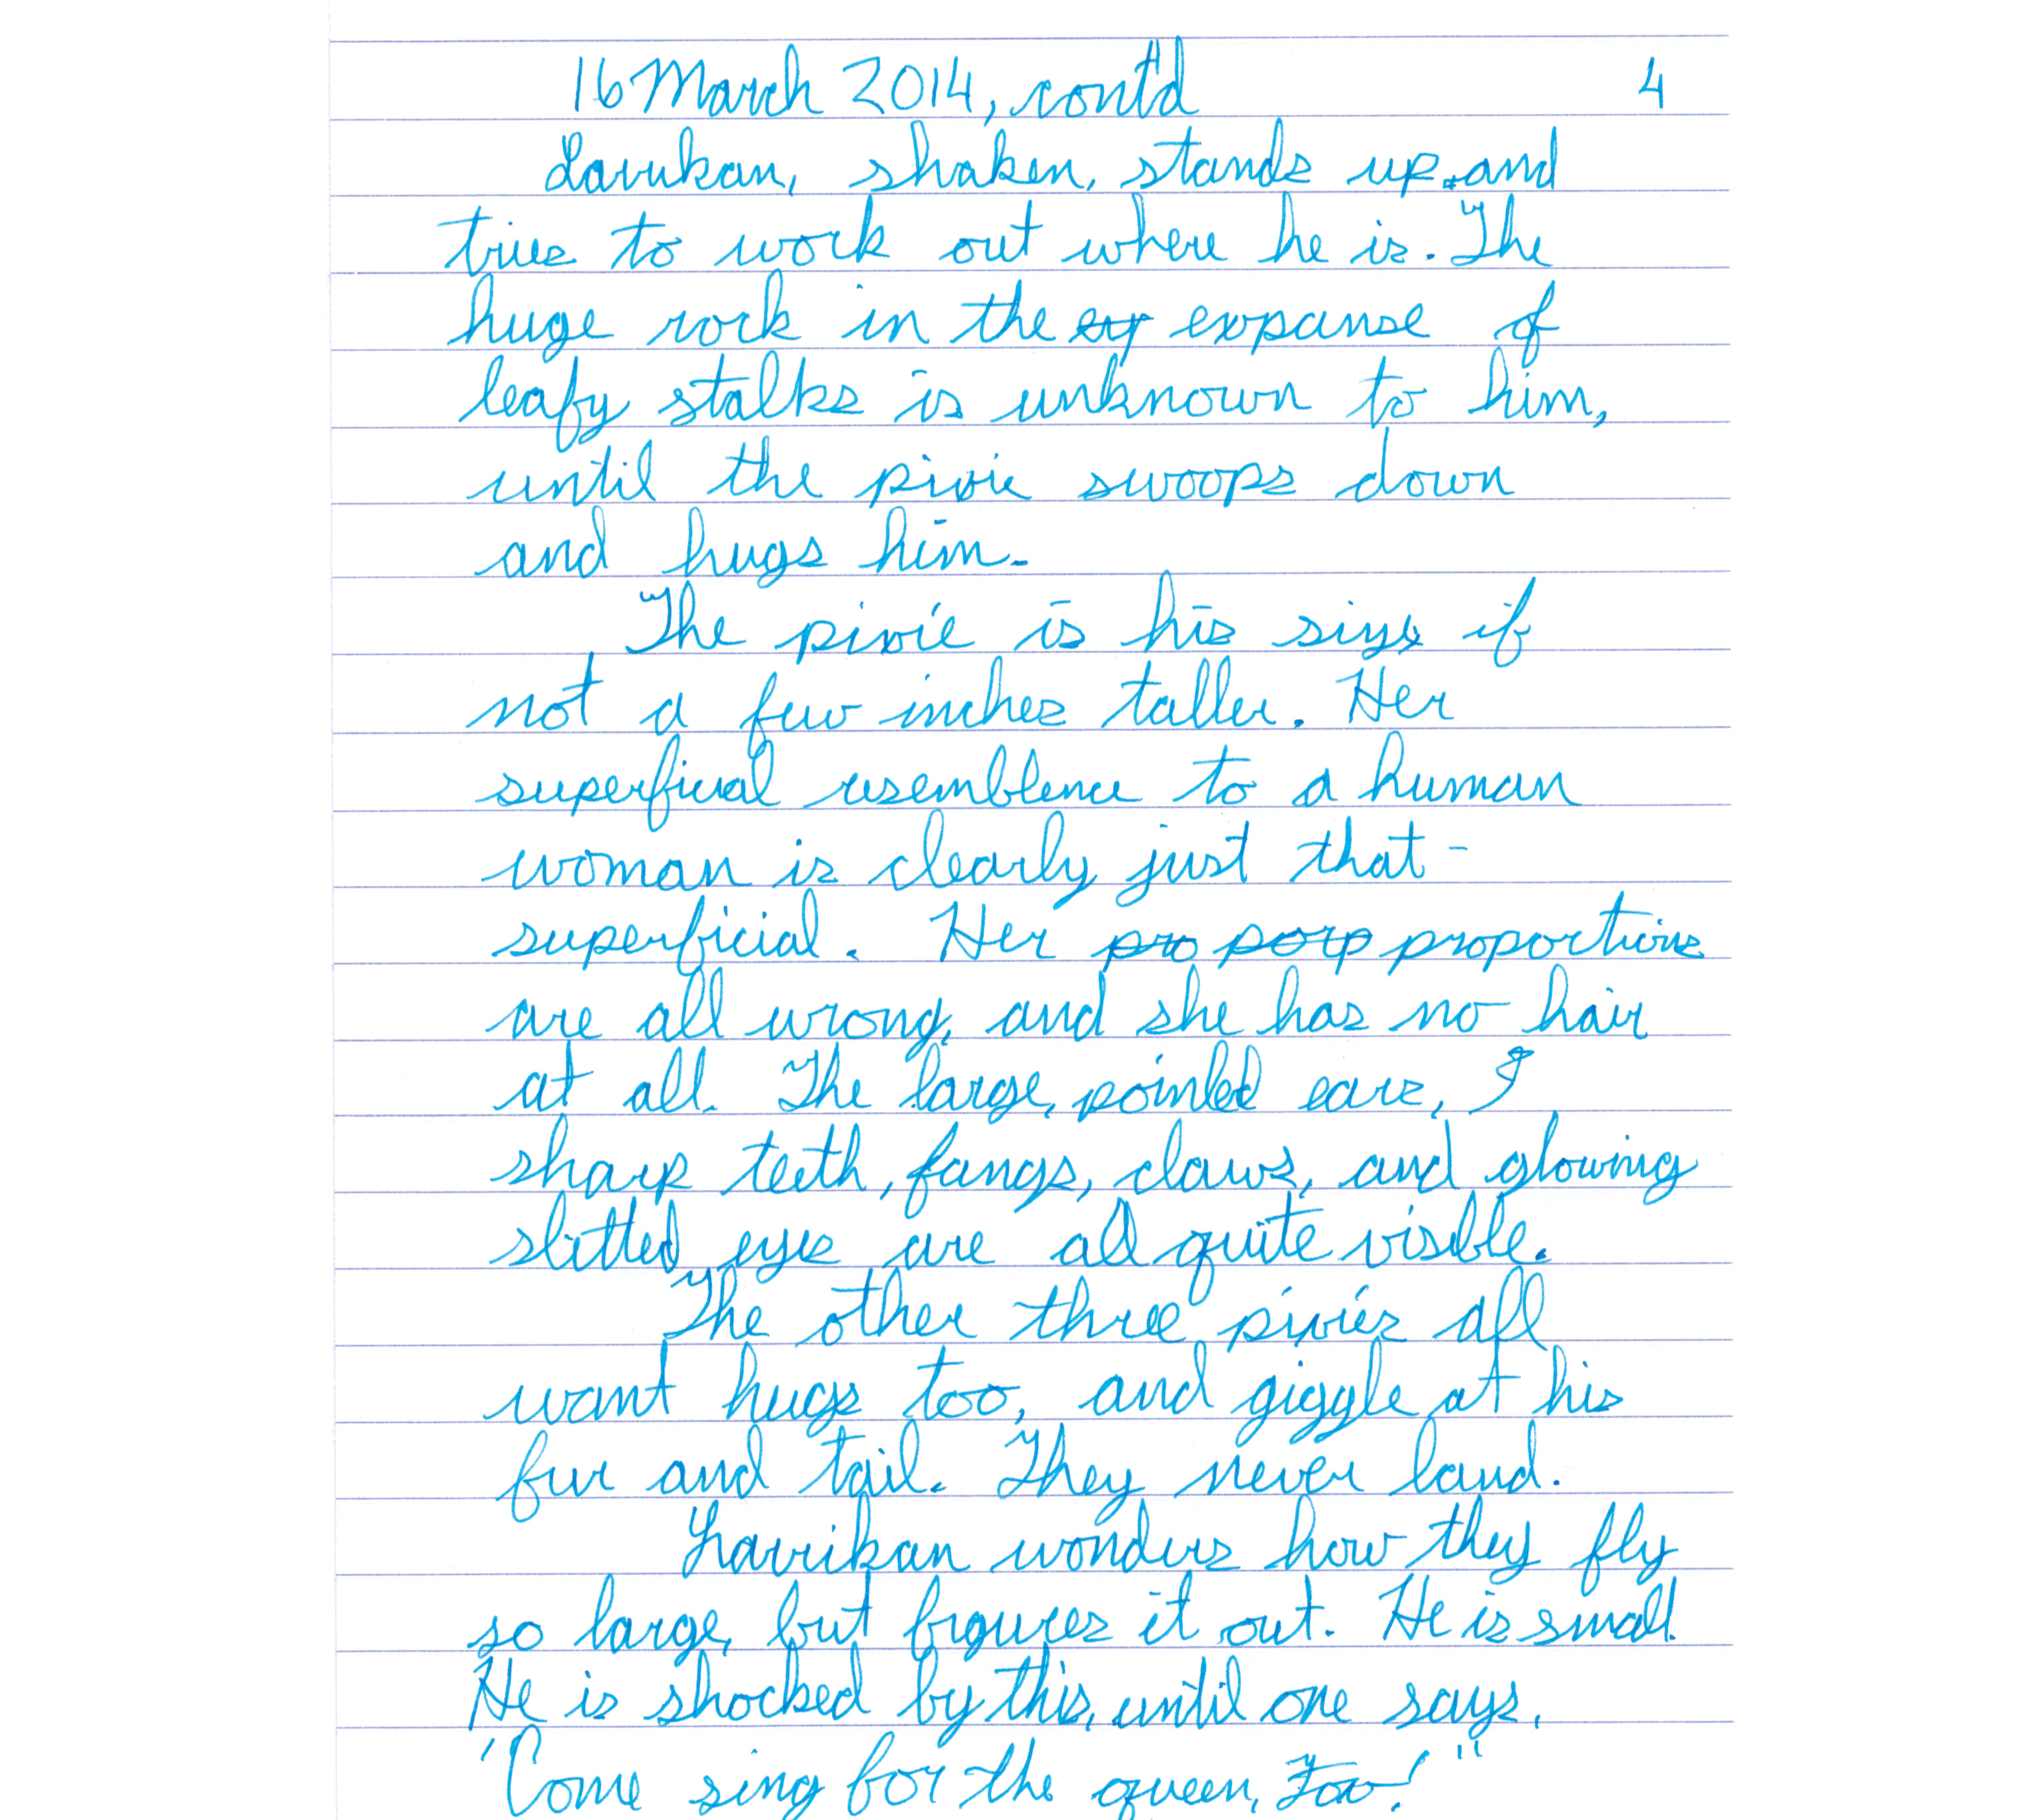 16 March 2014, cont'd 4
Larrikan, shaken, stands up and
tries to work out where he is. The
huge rock in the ex expanse of
leafy stalks is unknown to him,
until the pixie swoops down
and hugs him.
The pixie is his size if
not a few inches taller. Her
superficial resemblence to a human
woman is clearly just that -
superficial. Her pro porp proportions
are all wrong, and she has no hair
at all. The large, pointed ears,
sharp teeth, fangs, claws, and glowing
slitted eyes are all quite visible.
The other three pixies all
want hugs too, and giggle at his
fur and tail. They never land.
Larrikan wonders how they fly
so large, but figures it out. He is small.
He is shocked by this, until one says,
"Come sing for the queen, Fox!"